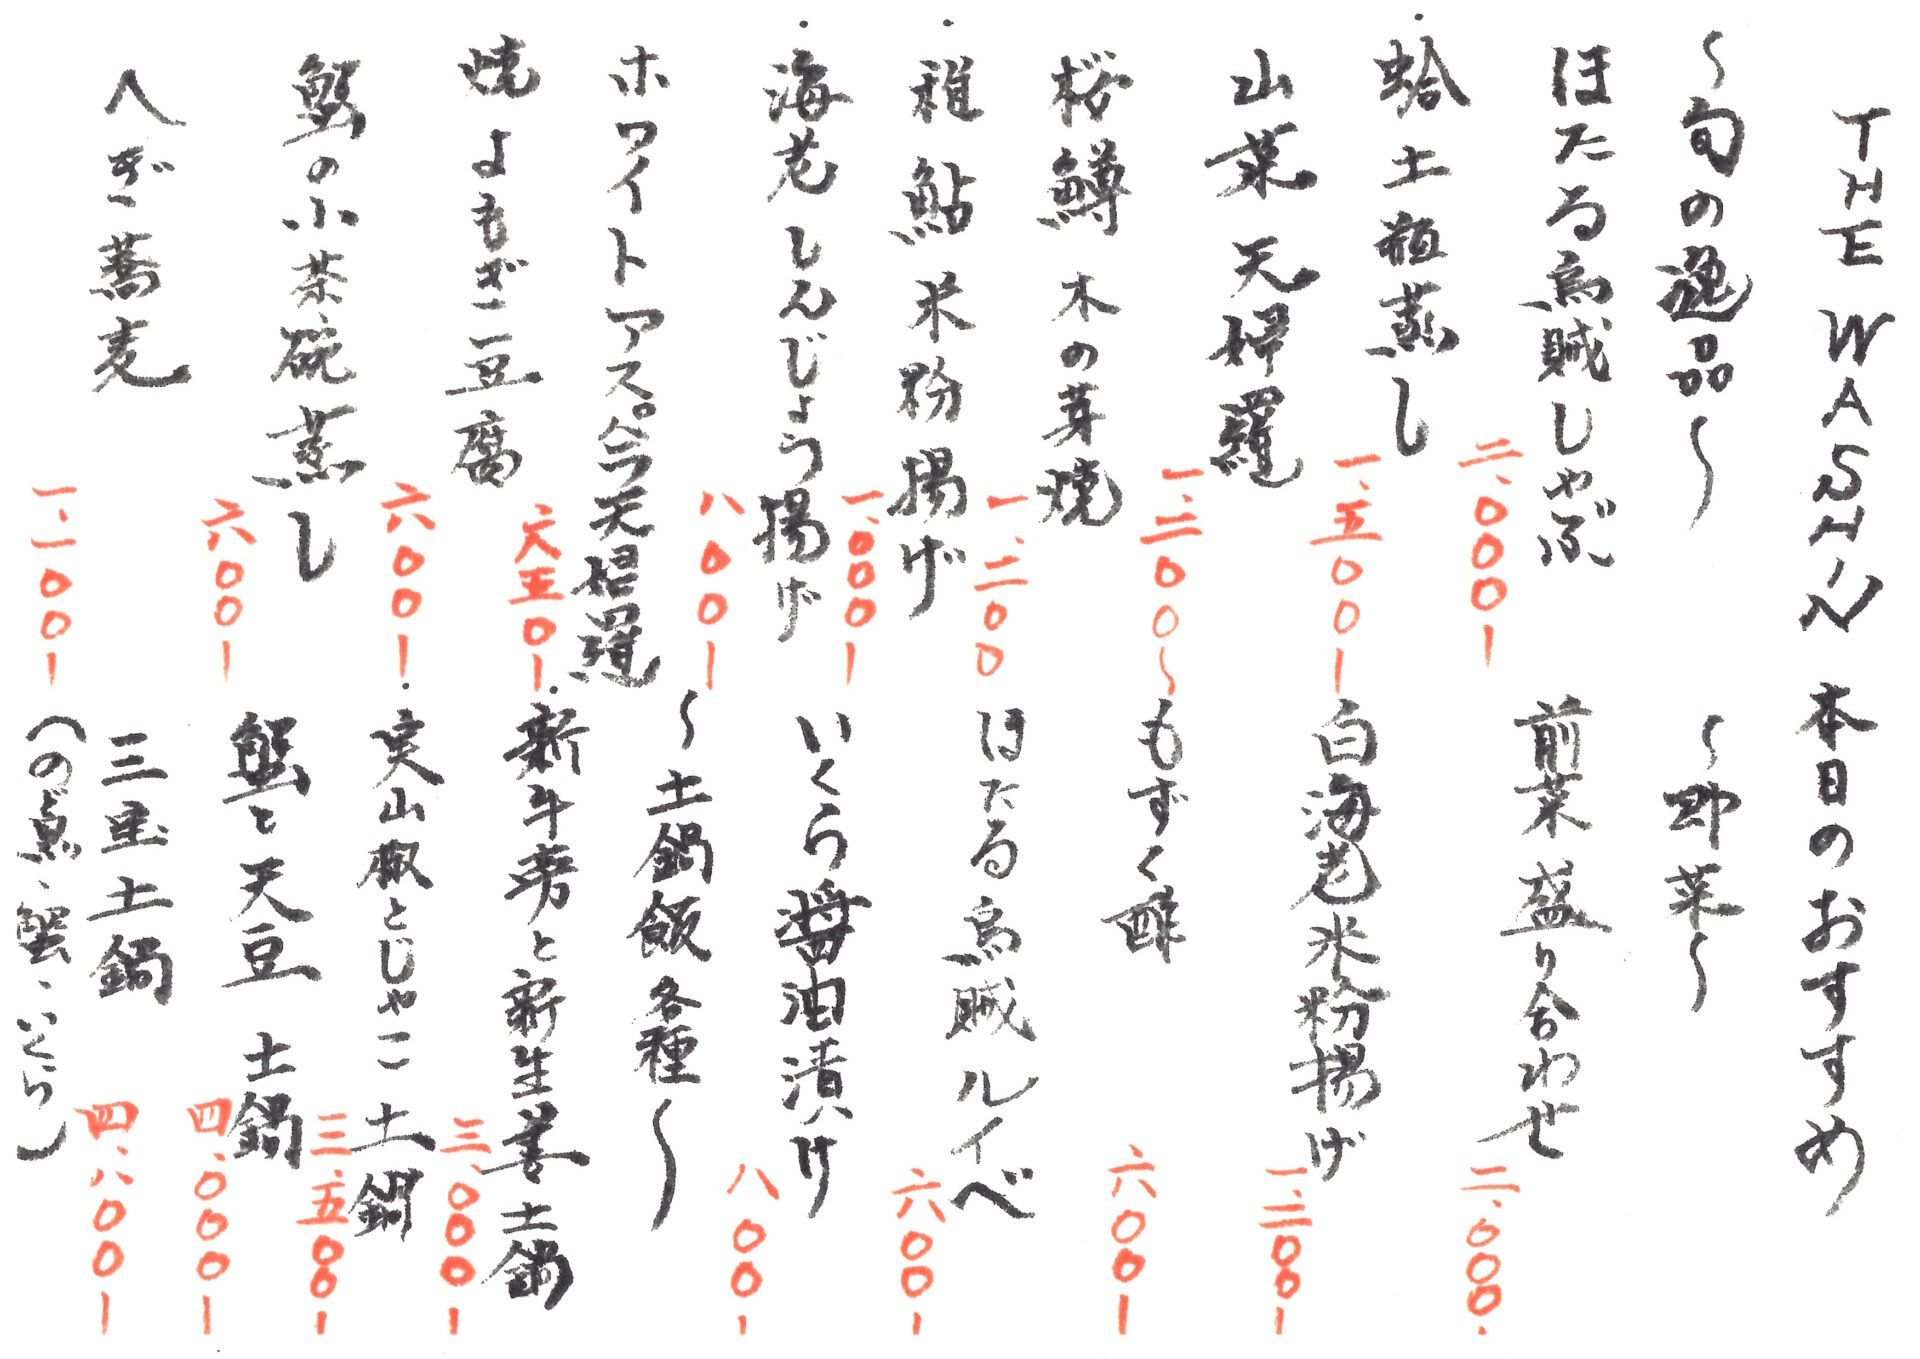 THE WASHIN 本日のおすすめ
〜旬の逸品〜
ほたる烏賊しゃぶ 二、〇〇〇ー
・蛤土瓶蒸し 一、五〇〇ー
山菜天婦羅 一、二〇〇〜
桜鱒木の芽焼 一、二〇〇
・稚鮎米粉揚げ 一、〇〇〇ー
・海老しんじょう揚げ 八〇〇ー
ホワイトアスパラ天婦羅 六五〇ー
焼よもぎ豆腐 六〇〇ー
蟹の小茶碗蒸し 六〇〇ー
へぎ蕎麦 一、一〇〇ー
〜即菜〜
前菜盛り合わせ 二、〇〇〇.
白海老米粉揚げ 一、二〇〇ー
もずく酢 六〇〇ー
ほたる烏賊ルイベ 六〇〇ー
いくら醤油漬け 八〇〇ー
〜土鍋飯各種〜
・新牛蒡と新生姜土鍋 三、〇〇〇ー
・実山椒とじゃこ土鍋 三、五〇〇ー
蟹と天豆土鍋 四、〇〇〇ー
土鍋 四、八〇〇ー
(のど黒、蟹、いくら)